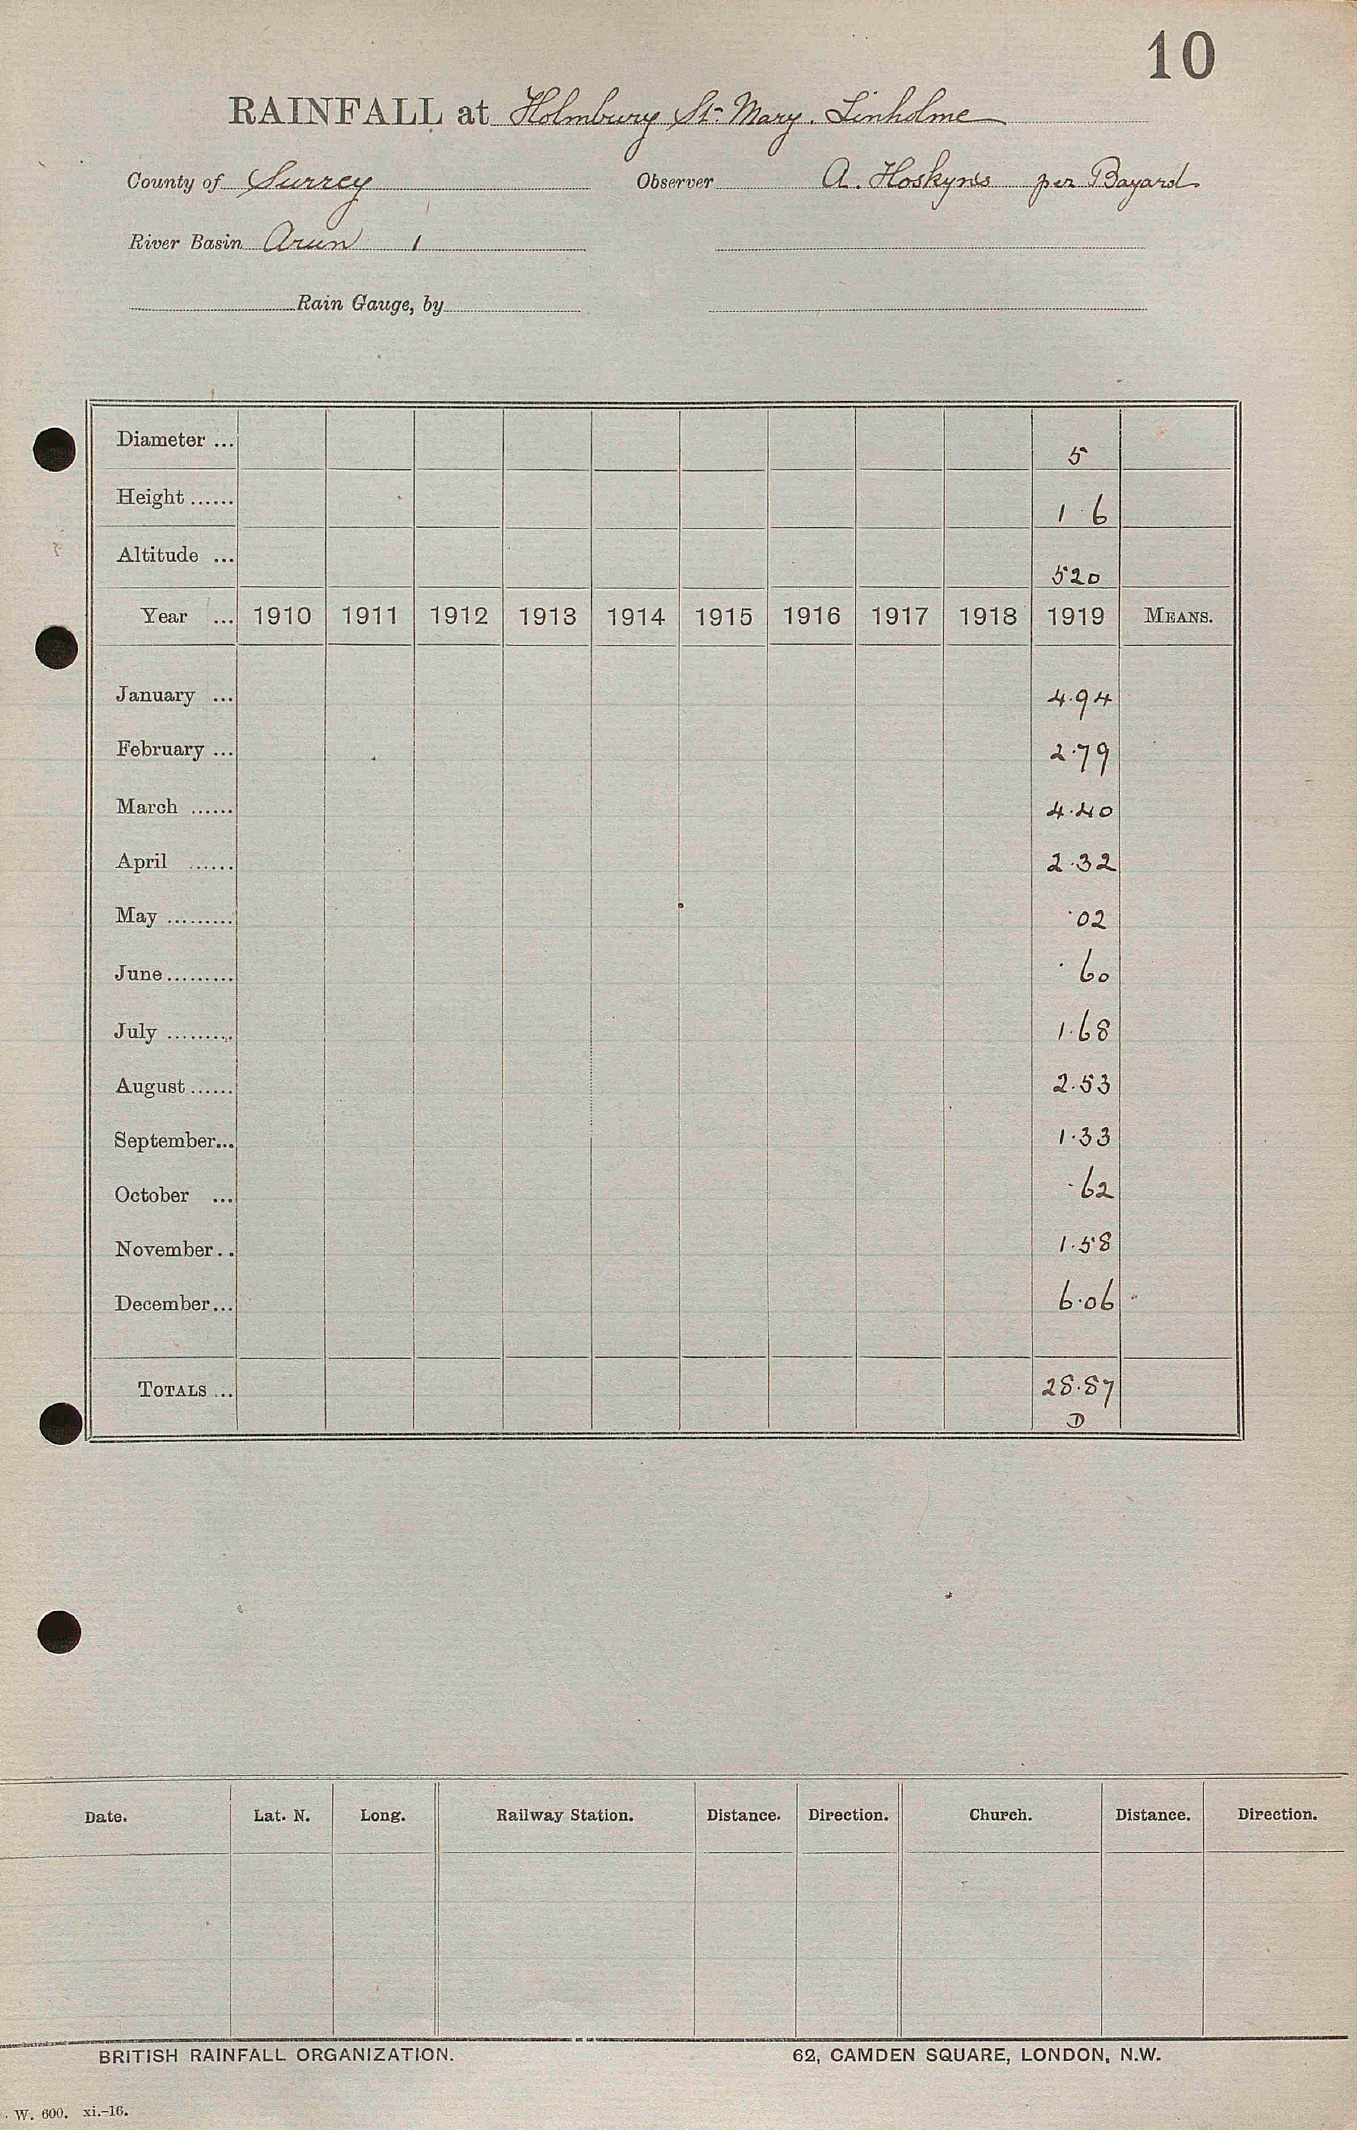 10
RAINFALL at Holmbury St. Mary. Linholme
County of Surrey Observer A. Hoskyns per Bayard
River Basin Arun 1
Rain Gauge, by
Diameter ... 5
Height ...... 1 6
Altitude ... 520
Year ... 1910 1911 1912 1913 1914 1915 1916 1917 1918 1919 MEANS.
January ... 4.94
February ... 2.79
March ...... 4.40
April ...... 2.32
May ......... .02
June ......... .60
July ......... 1.68
August ...... 2.53
September... 1.33
October ... .62
November.. 1.58
December... 6.06
TOTALS ... 28.87
D
Date. Lat. N. Long. Railway Station. Distance. Direction. Church. Distance. Direction.
BRITISH RAINFALL ORGANIZATION. 62, CAMDEN SQUARE, LONDON, N.W.
W. 600. xi.-16.